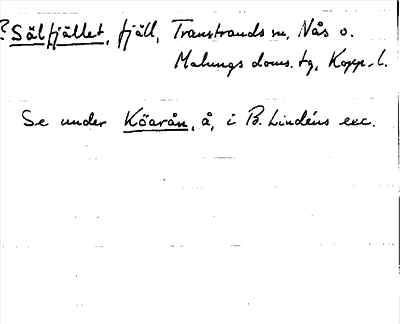 ?Sälfjället, fjäll, Transtrands sn, Nås o.
Malungs doms. tg, Kopp. l.
Se under Köarån, å, i B. Lindéns exc.